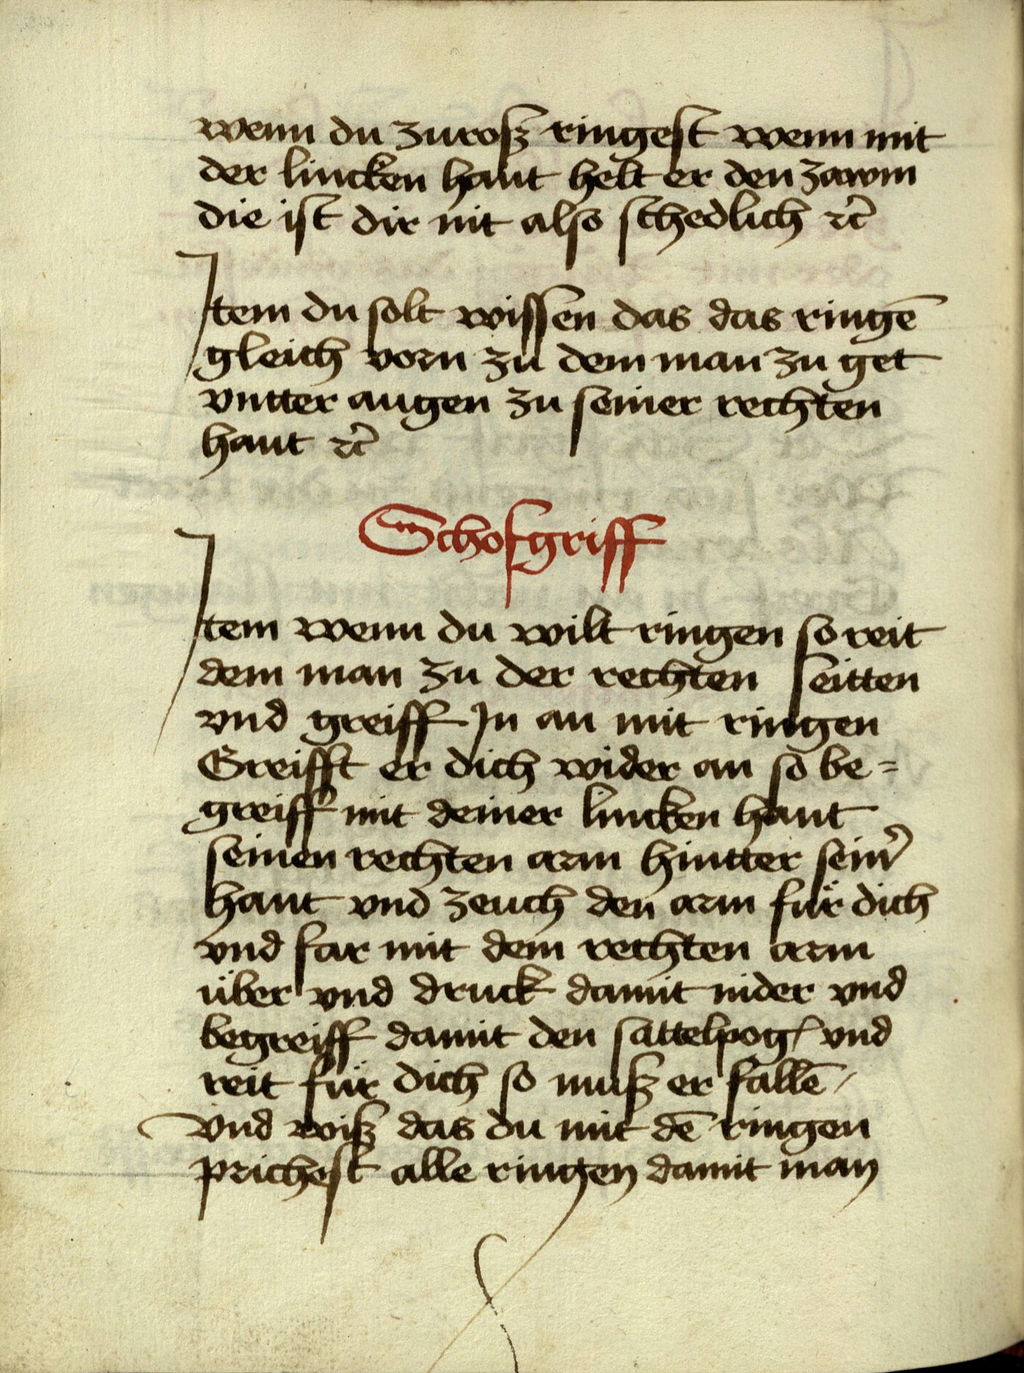 wenn du zuroß ringest wenn mit
der lincken hant helt er den zawm
die ist dir nit also schedlich ꝛc̃
Item du solt wissen das das ringē
gleich vorn zu dem man zu get
vntter augen zu seiner rechten
hant ꝛc̃
Schofgriff
Item wenn du wilt ringen so reit
dem man zu der rechten seitten
vnd greiff In an mit ringen
Greifft er dich wider an so be=
greiff mit deiner lincken hant
seinen rechten arm hintter sein᷑
hant vnd zeuch den arm für dich
vnd far mit dem rechten arm
über vnd druck damit nider vnd
begreiff damit den sattelpog/ vnd
reit für dich so muß er fallē /
Vnd wiß das du mit dē ringen
prichest alle ringen damit man